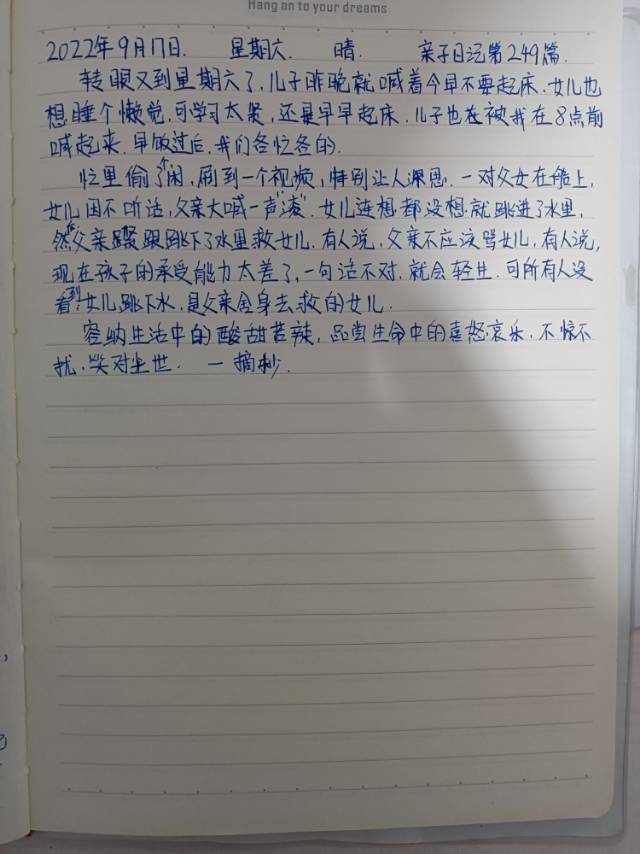 Hang on to your dreams
2022年9月17日. 星期六. 晴. 亲子日记第249篇.
转眼又到星期六了,儿子昨晚就喊着今早不要起床.女儿也
想睡个懒觉,可学习太累,还是早早起床.儿子也在被我在8点前
喊起来.早饭过后,我们各忙各的.
忙里偷了闲,刷到一个视频,特别让人深思.一对父女在船上,
女儿因不听话,父亲大喊一声"滚".女儿连想都没想就跳进了水里,
然后父亲跟跳下了水里救女儿.有人说,父亲不应该骂女儿,有人说,
现在孩子的承受能力太差了,一句话不对.就会轻生.可所有人没
看到女儿跳下水,是父亲舍身去救的女儿.
容纳生活中的酸甜苦辣,品尝生命中的喜怒哀乐,不惊不
扰.笑对尘世. 一摘抄.